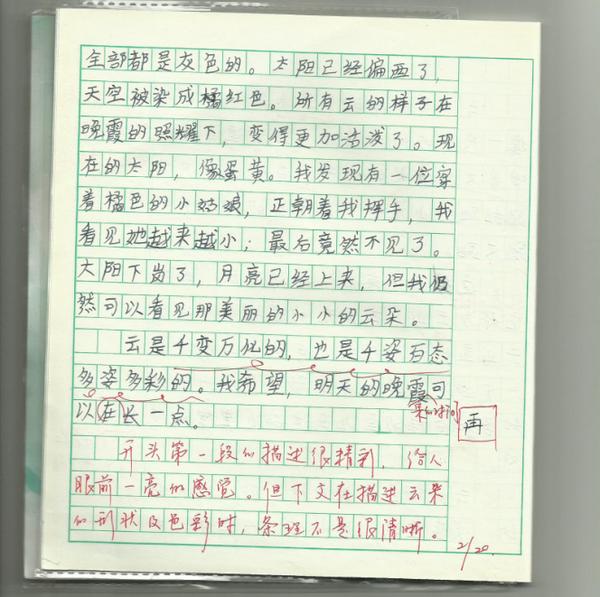 全部都是灰色的。太阳已经偏西了，
天空被染成橘红色。所有云的样子在
晚霞的照耀下，变得更加活泼了。现
在的太阳，像蛋黄。我发现有一位穿
着橘色的小姑娘，正朝着我挥手，我
看见她越来越小；最后竟然不见了。
太阳下岗了，月亮已经上来，但我仍
然可以看见那美丽的小小的云朵。
云是千变万化的，也是千姿百态
多姿多彩的。我希望，明天的晚霞可
以在长一点。
来的时间
再
开头第一段的描述很精彩，给人
眼前一亮的感觉。但下文在描述云朵
的形状及色彩时，条理不是很清晰。
2/20.